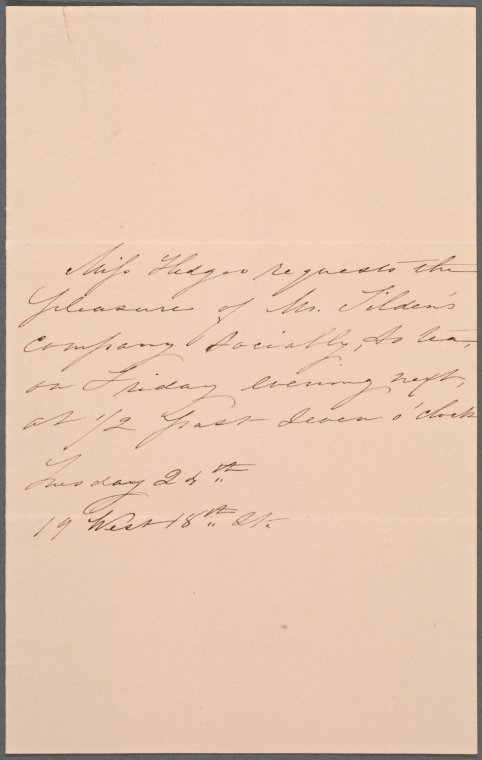 Miss Hedges requests the
pleasure of Mr. Tilden's
company sociably, to tea,
on Friday evening next,
at 1/2 past seven o'clock
Tuesday 24th
19 West 18th St.